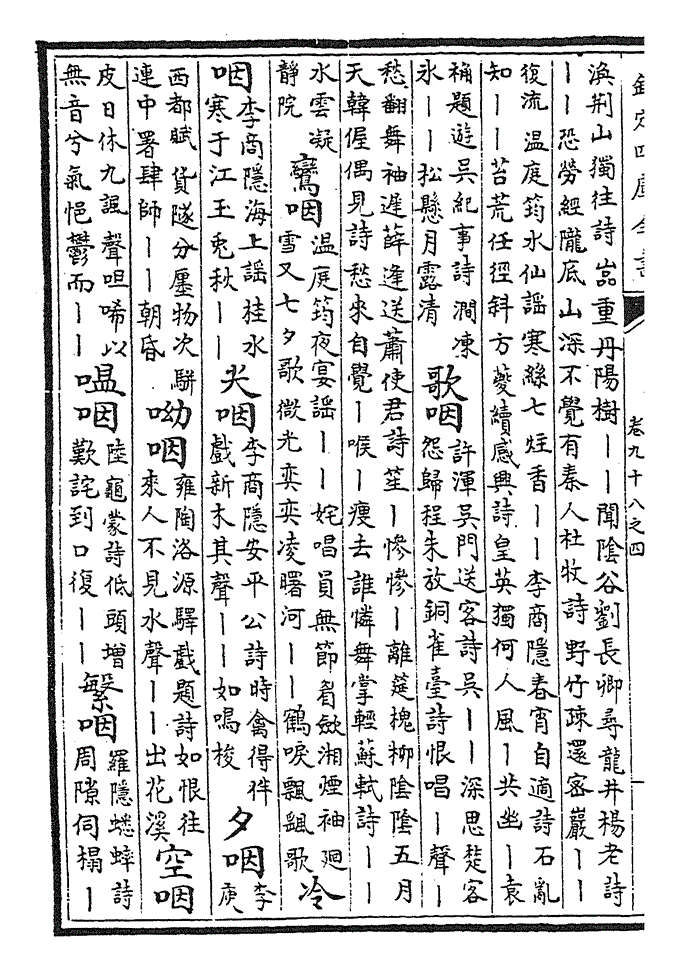 欽定四庫全書
卷九十八之四
渙荆山獨往詩嵓重丹陽樹丨丨聞陰谷劉長卿尋龍井楊老詩
丨丨恐勞經隴底山深不覺有秦人杜牧詩野竹疎還密巖丨丨
復流溫庭筠水仙謠寒絲七炷香丨丨李商隱春宵自適詩石亂
知丨丨苔荒任徑斜方夔續感興詩皇英獨何人風丨共幽丨袁
桷題遊吳紀事詩澗凍
氷丨丨松懸月露清
歌咽
許渾吳門送客詩吳丨丨深思楚客
怨歸程朱放銅雀臺詩恨唱丨聲丨
愁翻舞袖遲薛逢送蕭使君詩笙丨慘慘丨離筵槐柳陰陰五月
天韓偓偶見詩愁來自覺丨喉丨瘦去誰憐舞掌輕蘇軾詩丨丨
水雲凝
靜院
鸞咽
溫庭筠夜宴謠丨丨姹唱員無節眉斂湘煙袖廻
雪又七夕歌微光奕奕凌曙河丨丨鶴唳飄飖歌
冷
咽
李商隱海上謠桂水
寒于江玉兎秋丨丨
尖咽
李商隱安平公詩時禽得伴
戲新木其聲丨丨如鳴梭
夕咽
李
庾
西都賦貨隧分廛物次駢
連中署肆師丨丨朝昏
呦咽
雍陶洛源驛戲題詩如恨往
來人不見水聲丨丨出花溪
空咽
皮日休九諷聲呾唏以
無音兮氣悒鬱而丨丨
嗢咽
陸龜蒙詩低頭增
歎詫到口復丨丨
繁咽
羅隱蟋蟀詩
周隙伺榻丨